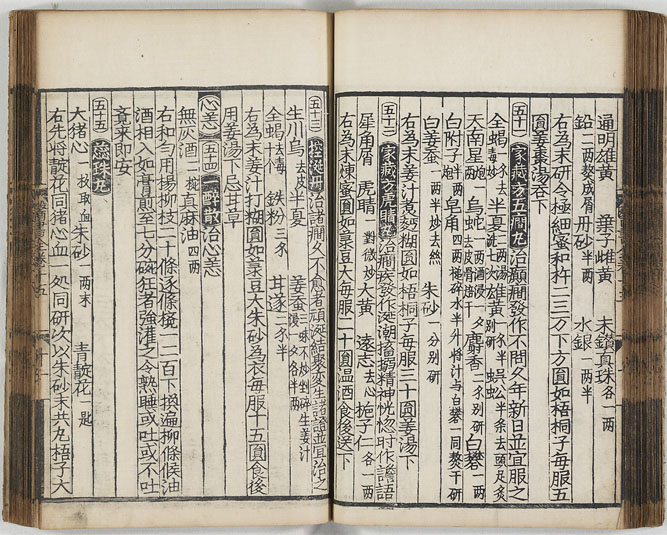 通明雄黃 葉子雌黃 未鑽真珠各一兩
鉛二兩熬成屑 丹砂半兩 水銀一兩半
右為末研令極細蜜和杵二三万下方圓如梧桐子每服五
圓姜棗湯吞下
五十一 家藏方五癇丸治癲癇發作不問久年新日並宜服之
全蝎 半夏 雄黃 蜈蚣半条去頭足炙
天南星 烏蛇 去皮骨焙干 麝香二分別研 白礬一兩
白附子半兩炮 皂角四兩槌碎水半升將汁与白礬一同熬干研
白姜蚕一兩半炒去絲 朱砂一分別研
右為末姜汁煮麪糊圓如梧桐子每服三十圓姜湯下
五十二 家藏方虎睛丸治癇疾發作涎潮搐搦精神恍惚時作譫語
犀角屑 虎睛一對微炒 大黃 遠志去心 梔子仁各一兩
右為末煉蜜圓如菉豆大每服二十圓温酒食後送下
五十三 治諸癇久不愈者頑涎結聚変生諸證並宜治之
生川烏去皮 半夏 姜蚕 生姜汁
全蝎去毒 鉄粉三分 甘遂二分半
右為末姜汁打糊圓如菉豆大朱砂為衣每服十五圓食後
用姜湯下忌甘草
心恙 五十四 一醉散治心恙
無灰酒二椀 真麻油四兩
右和勻用楊柳枝二十條逐條攪一二百下換遍柳條候油
酒相入如膏煎至七分碗狂者強灌之令熟睡或吐或不吐
覚来即安
五十五 蕊珠丸
大猪心一枚取血 朱砂一兩末 青靛花一匙
右先將靛花同猪心血一処同研次以朱砂末共丸梧子大